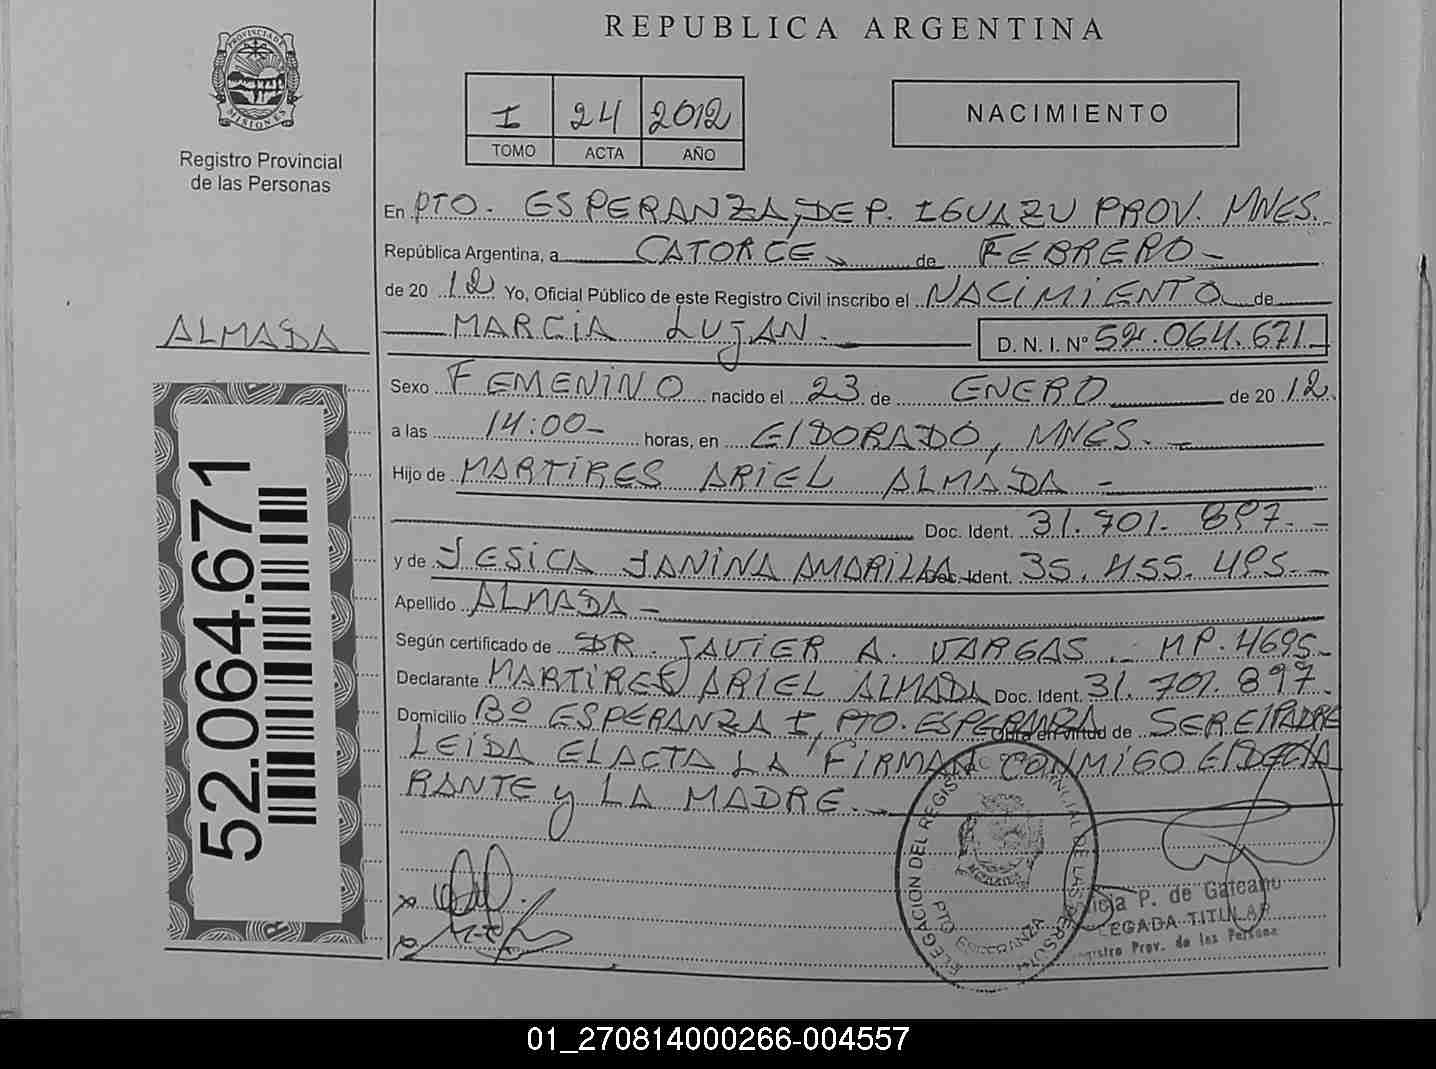 REPUBLICA ARGENTINA
PROVINCIA DE
MISIONES
Registro Provincial
de las Personas
I 24 2012
TOMO ACTA AÑO
NACIMIENTO
En PTO. ESPERANZA, DEP. IGUAZU PROV. MNES.
República Argentina, a CATORCE de FEBRERO
de 2012 Yo, Oficial Público de este Registro Civil inscribo el NACIMIENTO de
MARCIA LUJAN. D. N. I. Nº 52.064.671
ALMADA
Sexo FEMENINO nacido el 23 de ENERO de 2012
a las 14:00 horas, en ElDORADO, MNES.
Hijo de MARTIRES ARIEL ALMADA
Doc. Ident. 31.701.897
y de JESICA JANINA AMARILLA Doc. Ident. 35.455.495
Apellido ALMADA
Según certificado de DR. JAVIER A. VARGAS. MP. 4695
Declarante MARTIRES ARIEL ALMADA Doc. Ident. 31.701.897
Domicilio Bº ESPERANZA I, PTO. ESPERANZA Obra en virtud de SER El PADRE
LEIDA El ACTA LA FIRMAN CONMIGO El DECLA
RANTE y LA MADRE.
52.064.671
DELEGACION DEL REGISTRO PROVINCIAL DE LAS PERSONAS
PTO ESPERANZA
MISIONES
P. de Galeano
DELEGADA TITULAR
Registro Prov. de las Personas
01_270814000266-004557